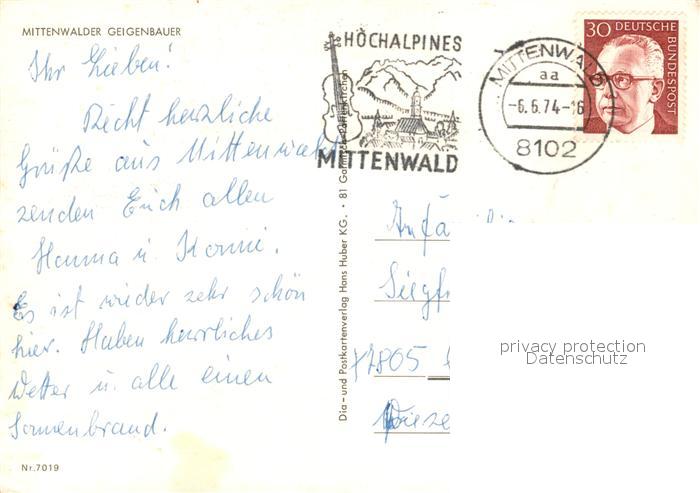 MITTENWALDER GEIGENBAUER
Ihr Lieben!
Recht herzliche
Grüße aus Mittenwald
senden Euch allen
Hanna u.
Es ist wieder sehr schön
hier. Haben herrliches
Wetter u. alle einen
Sonnenbrand.
Nr.7019
Dia- und Postkartenverlag Hans Huber KG. · 81 Garmisch-Partenkirchen
HÖCHALPINES
MITTENWALD
MITTENWALD
aa
-6.6.74-16
8102
30 DEUTSCHE
BUNDESPOST
An Fa
Siegf
7805
Wiese
privacy protection
Datenschutz